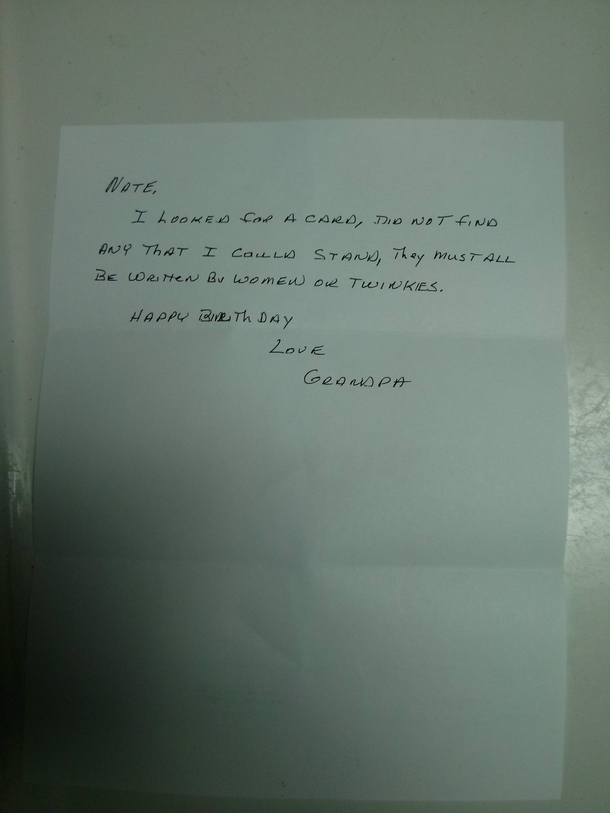 NATE,
I LOOKED FOR A CARD, DID NOT FIND
ANY THAT I COULD STAND, They MUST ALL
BE WRITTEN BY WOMEN OR TWINKIES.
HAPPY BIRTh DAY
LOVE
GRANDPA